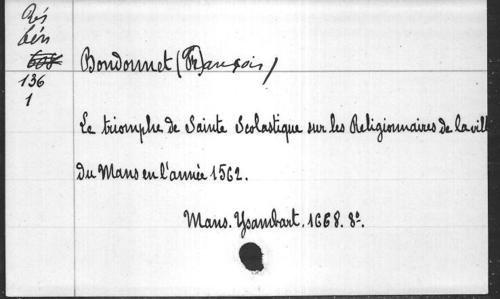 Rés
bén
608
136
1
Bondonnet (François)
Le triomphe de Sainte Scolastique sur les Religionnaires de la vill
du Mans en l'année 1562.
Mans. Ysambart. 1668. 8°.